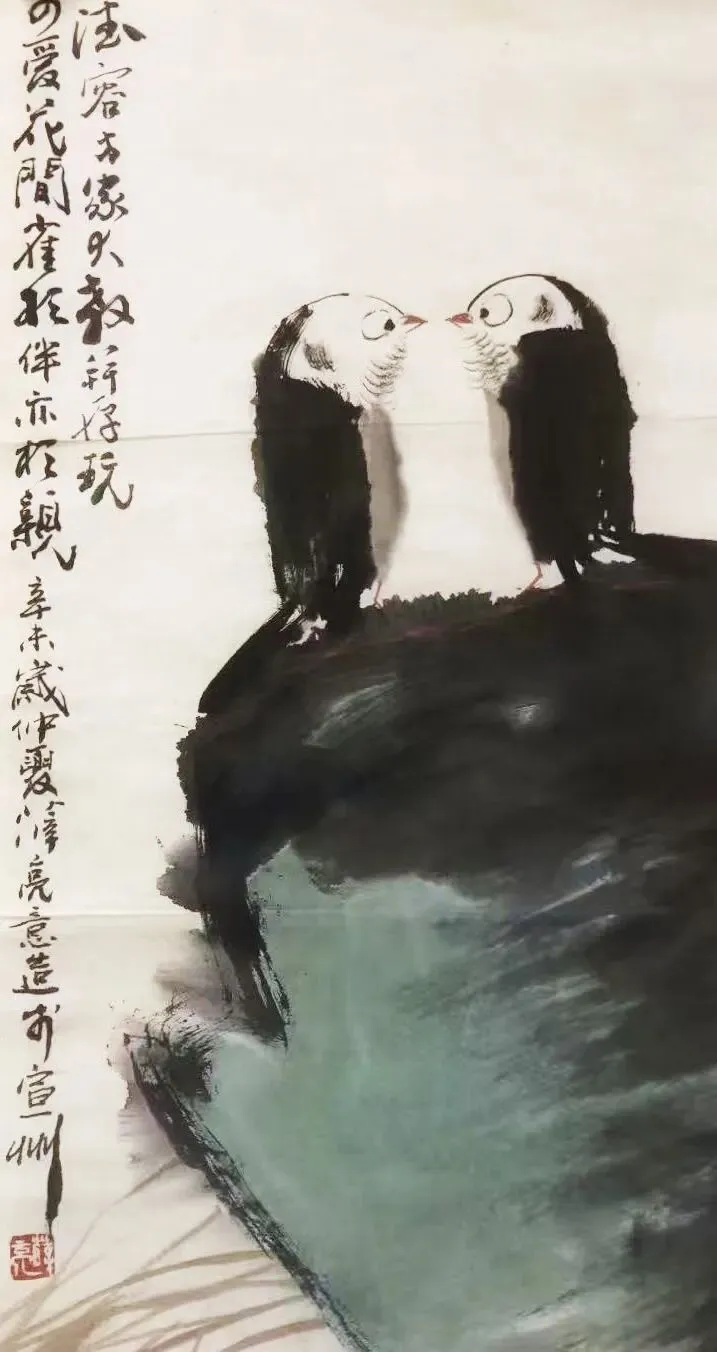 德容方家大教玩
可愛花間雀相伴亦相親辛未歲仲夏亮意造於宣州